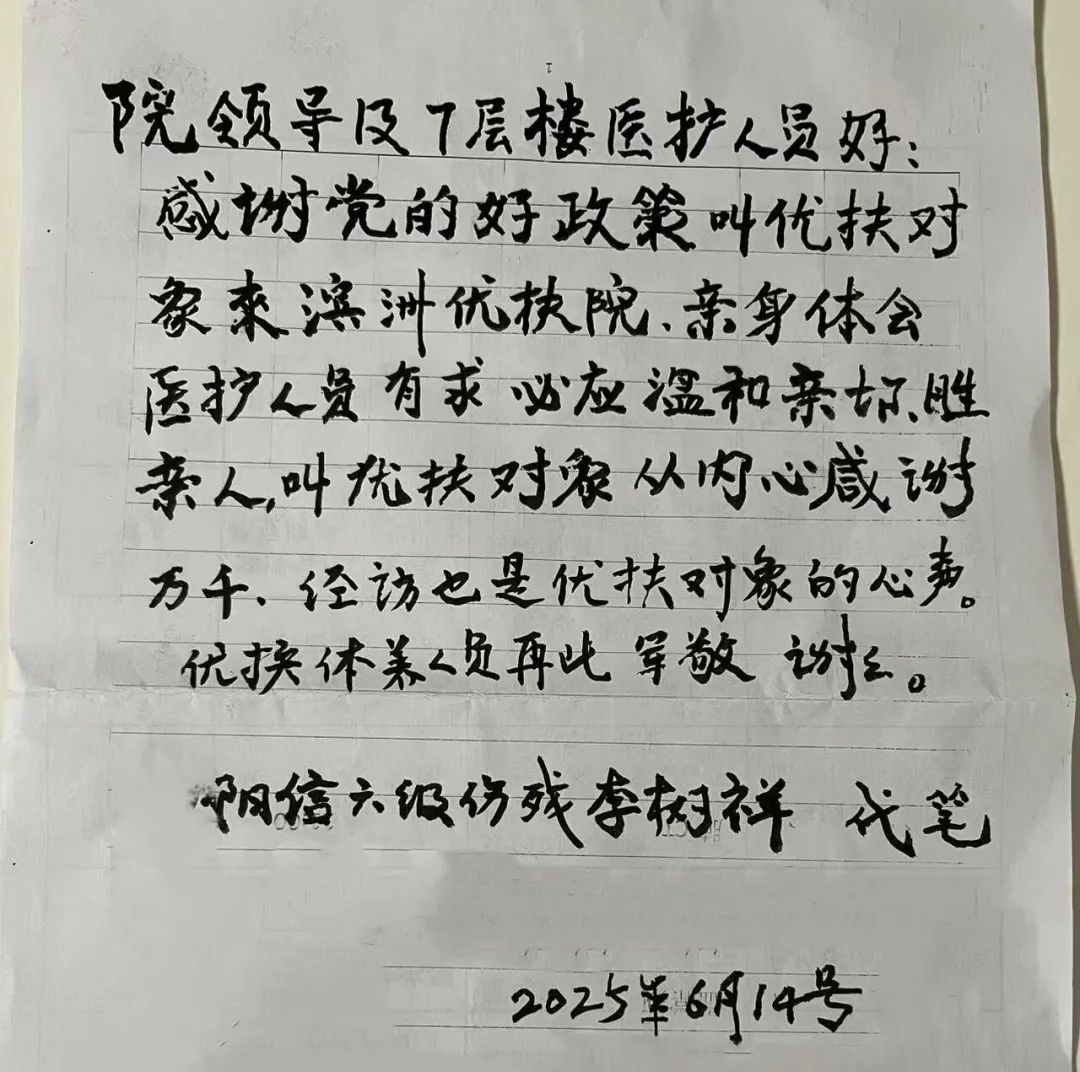 院领导及7层楼医护人员好:
感谢党的好政策叫优扶对
象来滨洲优扶院、亲身体会
医护人员有求必应温和亲切、胜
亲人,叫优扶对象从内心感谢
万千、经访也是优扶对象的心声。
优扶体养人员再此军敬 谢之。
阳信六级伤残李树祥 代笔
2025年6月14号